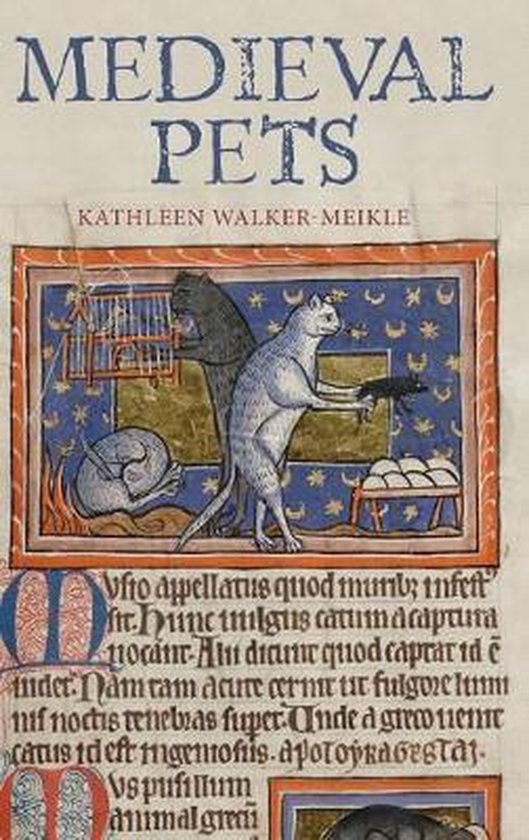 MEDIEVAL
PETS
KATHLEEN WALKER-MEIKLE
Musio appellatus quod muribꝫ infestꝰ
sit. Hunc uulgus catum a captura
uocant. Alii dicunt quod captat id ē
uidet. Nam tam acute cernit ut fulgore lumi
nis noctis tenebras super. Unde a greco uenit
catus id est ingeniosus.
Mus pusillum
animal grecū